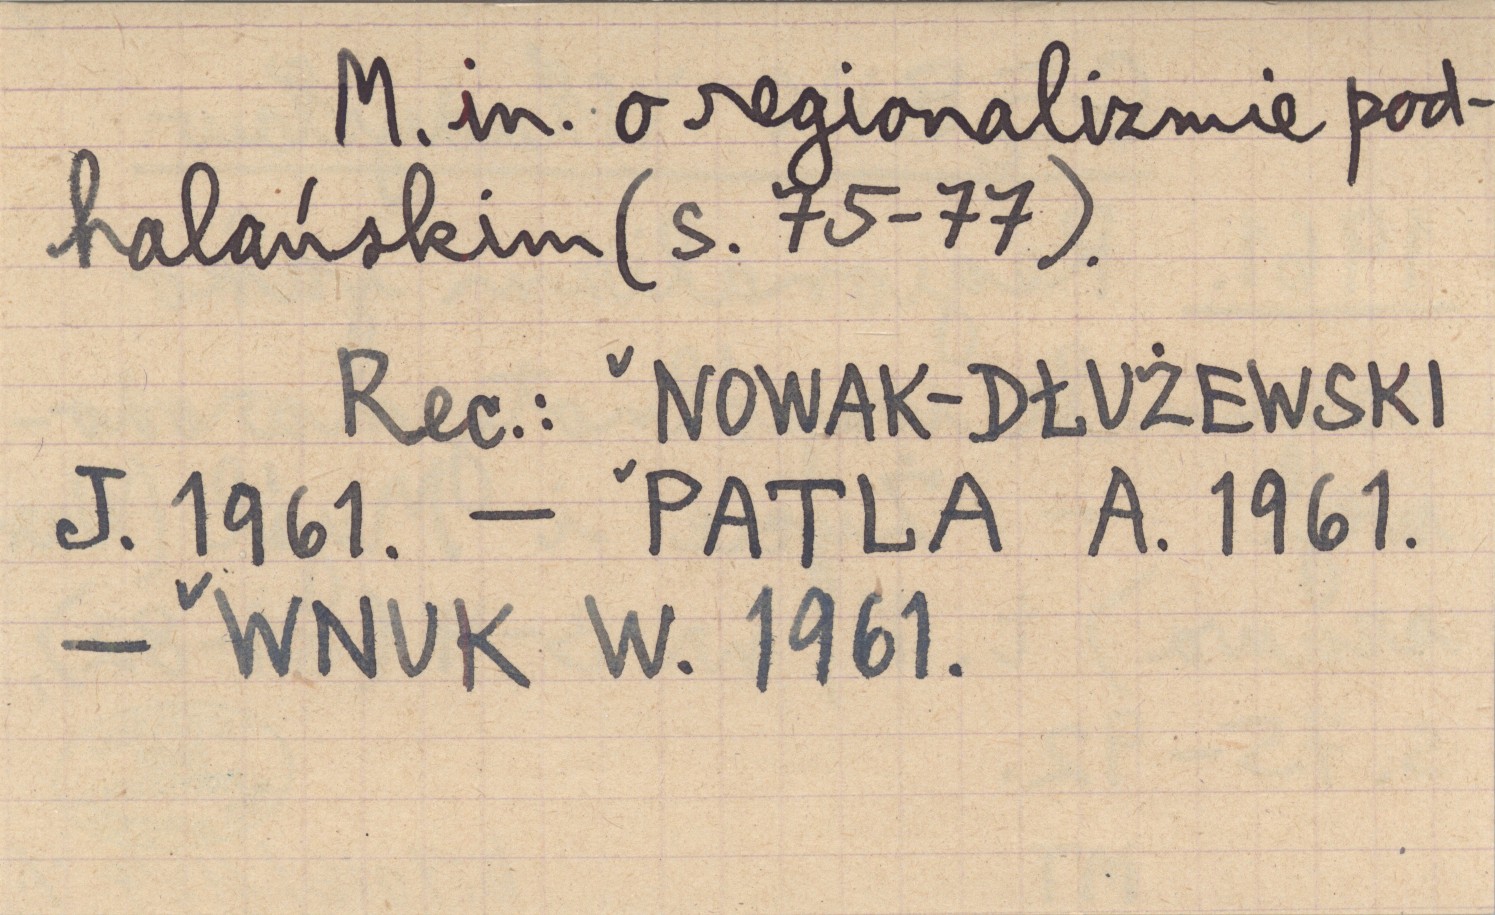 M. in. o regionalizmie pod-
halańskim (s. 75-77).
Rec.: ˇNOWAK-DŁUŻEWSKI
J. 1961. — ˇPATLA A. 1961.
— ˇWNUK W. 1961.